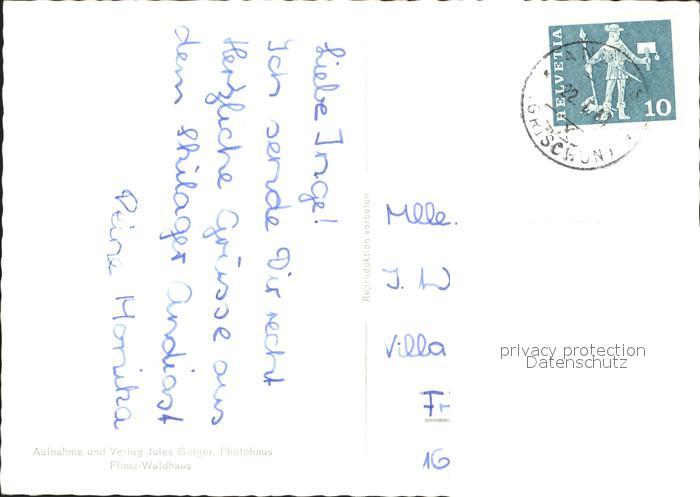 Liebe Inge!
Ich sende Dir recht
Herzliche Grüsse aus
dem Skilager Andiast
Deine Monika
Aufnahme und Verlag Jules Geiger, Photohaus
Flims-Waldhaus
Reproduktion verboten
HELVETIA
10
(GRISCHUN)
Mlle.
J. W
Villa
Fr
16
privacy protection
Datenschutz